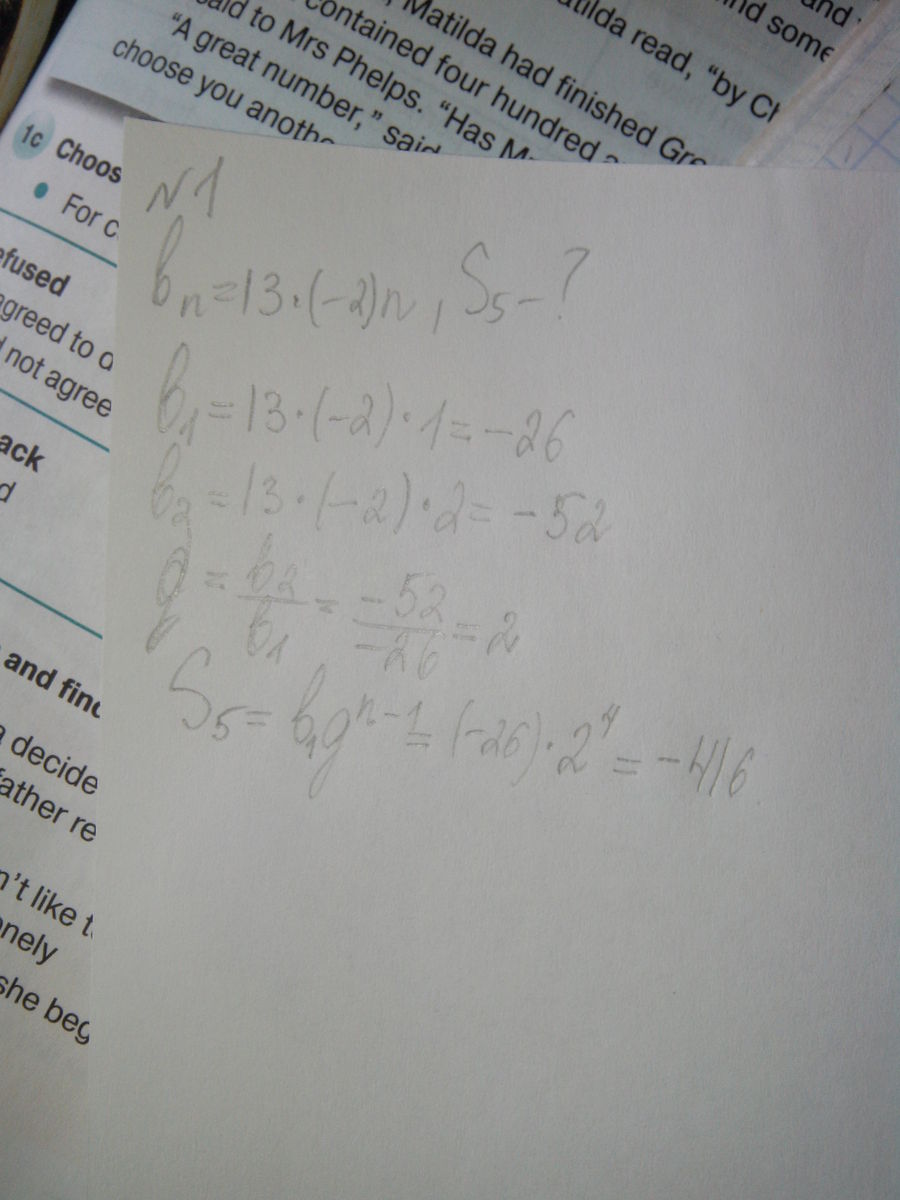 , Matilda had finished Gre
atilda read, "by Ch
ind some
and
contained four hundred a
said to Mrs Phelps. "Has M
"A great number," said
choose you anothe
1c Choos
• For c
efused
agreed to d
d not agree
ack
d
and find
a decide
father re
n't like t
onely
she beg
N1
bn=13·(-2)n, S5-?
b1=13·(-2)·1=-26
b2=13·(-2)·2=-52
q=b2/b1=-52/-26=2
S5=b1q^n-1=(-26)·2^4=-416